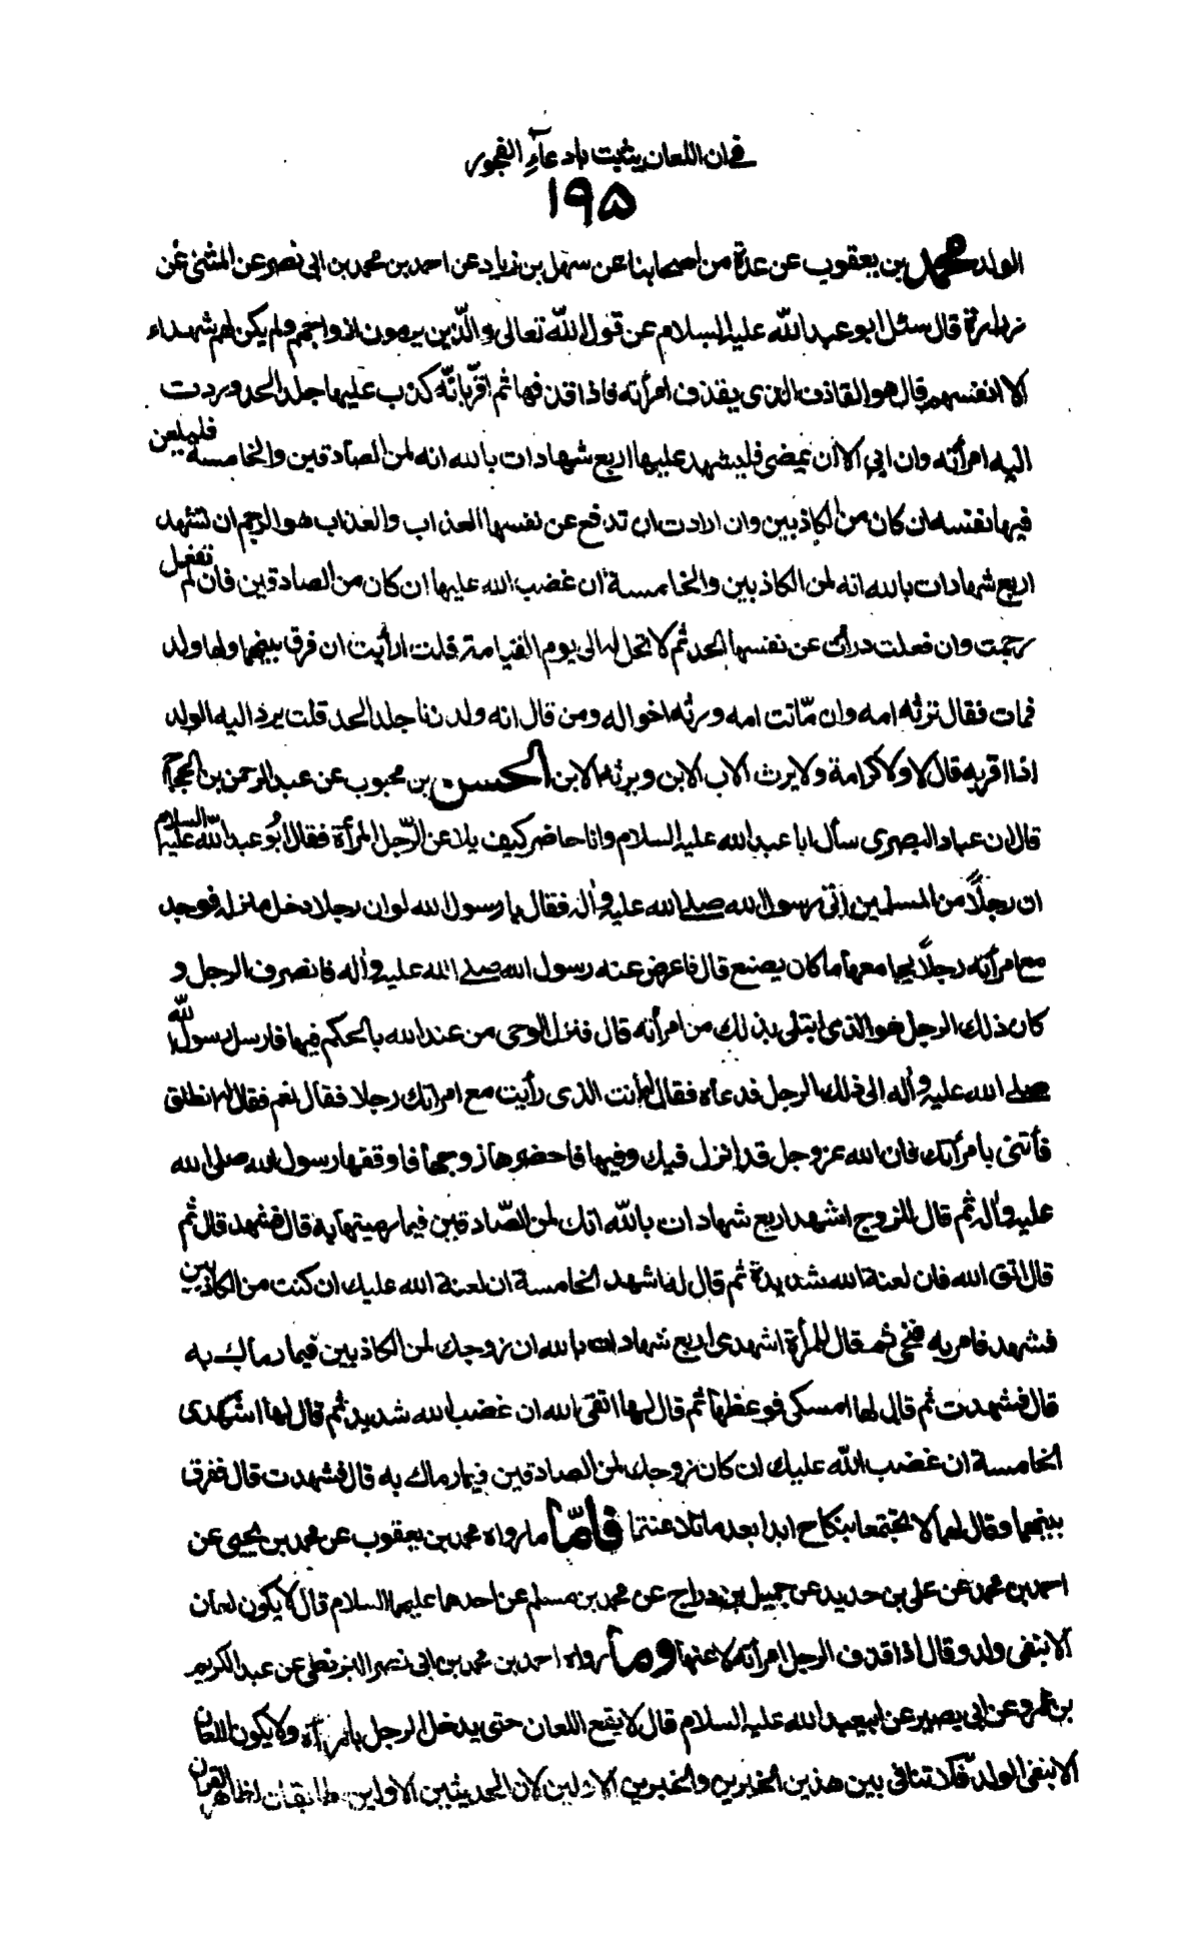 في ان اللعان يثبت بادعآءِ الفجور
١٩٥
الولد محمد بن يعقوب عن عدة من اصحابنا عن سهل بن زياد عن احمد بن محمد بن ابى نصر عن المثنى عن
زرارة قال سئل ابو عبد الله عليه السلام عن قول اللّه تعالى والّذين يرمون ازواجهم ولم يكن لهم شهداء
الا انفسهم قال هو القاذف الذى يقذف امرأته فاذا قذفها ثم اقرّ بانّه كذب عليها جلد الحد وردت
اليه امرأته وان ابى الا ان يمضى فليشهد عليها اربع شهادات بالله انه لمن الصادقين والخامسة فليلعن
فيها نفسه ان كان من الكاذبين وان ارادت ان تدفع عن نفسها العذاب والعذاب هو الرجم ان تشهد
اربع شهادات بالله انه لمن الكاذبين والخامسة ان غضب الله عليها ان كان من الصادقين فان لم تفعل
رجمت وان فعلت درأت عن نفسها الحد ثم لا تحل له الى يوم القيامة قلت ارأيت ان فرق بينهما ولها ولد
فمات فقال ترثه امه وان مّاتت امه ورثه اخواله ومن قال انه ولد زنا جلد الحد قلت يرد اليه الولد
اذا اقر به قال لا ولا كرامة ولا يرث الاب الابن ويرثه الابن الحسن بن محبوب عن عبد الرحمن بن الحجاج
قال ان عباد البصرى سأل ابا عبد الله عليه السلام وانا حاضر كيف يلاعن الرّجل المرأة فقال ابُو عبد اللّه عليه السلام
ان رجلًا من المسلمين اتى رسول الله صلى الله عليه وآله فقال يا رسول الله لو ان رجلا دخل منزله فوجد
مع امرأته رجلًا يجامعها ما كان يصنع قال فاعرض عنه رسول الله صلى الله عليه وآله فانصرف الرجل و
كان ذلك الرجل هو الذى ابتلى بذلك من امرأته قال فنزل الوحى من عند الله بالحكم فيها فارسل رسول الله
صلى الله عليه وآله الى ذلك الرجل فدعاه فقال له أنت الذى رأيت مع امرأتك رجلا فقال نعم فقال له انطلق
فأتنى بامرأتك فان الله عزوجل قد انزل فيك وفيها فاحضرها زوجها فاوقفها رسول الله صلى الله
عليه وآله ثم قال للزوج اشهد اربع شهادات باللّه انك لمن الصّادقين فيما رميتها به قال فشهد قال ثم
قال اتق الله فان لعنة الله شديدة ثم قال له اشهد الخامسة ان لعنة الله عليك ان كنت من الكاذبين
فشهد فامر به فنحى ثم قال للمرأة اشهدى اربع شهادات بالله ان زوجك لمن الكاذبين فيما رماك به
قال فشهدت ثم قال لها امسكى فوعظها ثم قال لها اتقى الله ان غضب الله شديد ثم قال لها اشهدى
الخامسة ان غضب اللّه عليك ان كان زوجك لمن الصادقين فيما رماك به قال فشهدت قال ففرق
بينهما وقال لهما لا تجتمعا بنكاح ابدا بعد ما تلاعنتما فامّا ما رواه محمد بن يعقوب عن محمد بن يحيى عن
احمد بن محمد عن على بن حديد عن جميل بن دراج عن محمد بن مسلم عن احدهما عليهما السلام قال لا يكون لعان
الا بنفى ولد وقال اذا قذف الرجل امرأته لاعنها وما رواه احمد بن محمد بن ابى نصر البزنطى عن عبد الكريم
بن عمرو عن ابى بصير عن ابيعبد الله عليه السلام قال لا يقع اللعان حتى يدخل الرجل بامرأته ولا يكون اللعان
الا بنفى الولد فلا تنافى بين هذين الخبرين والخبرين الاولين لان الحديثين الاولين مطابقان لظاهر القرآن